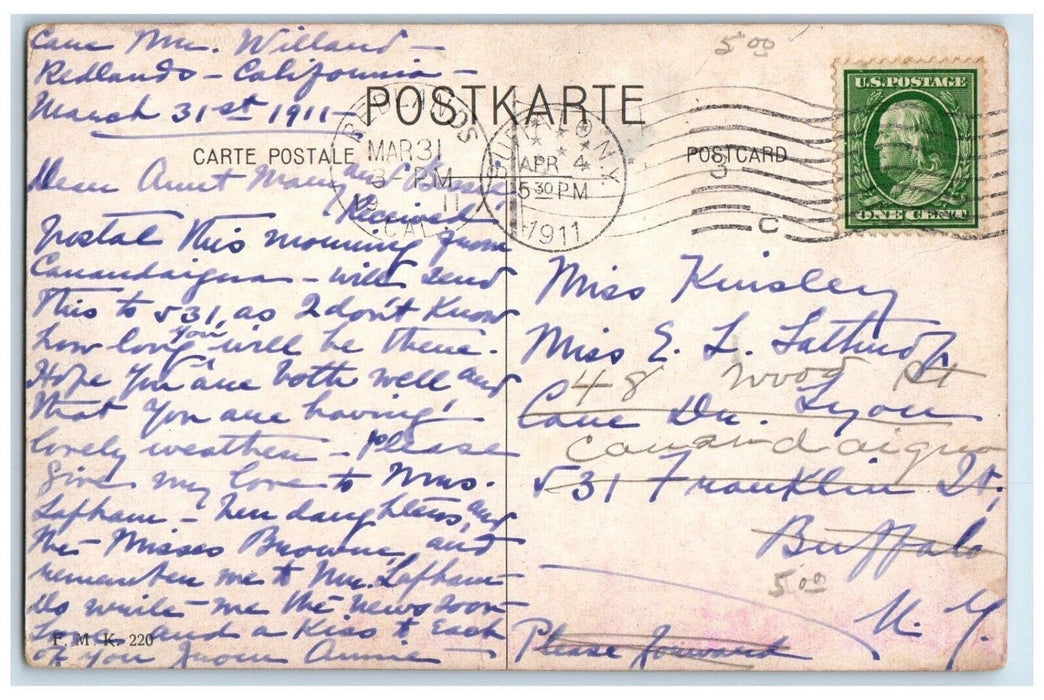 Care Mr. Willard –
Redlands – California –
March 31st 1911 –
5 00
POSTKARTE
CARTE POSTALE
POSTCARD
U.S. POSTAGE
ONE CENT
REDLANDS
MAR 31
3 PM
19 11
CAL.
N.Y.
APR 4
5 30 PM
1911
3
C
Dear Aunt Mary and Bessie
Received
postal this morning from
Canandaigua – will send
this to 531, as I don't know
how long you will be there.
Hope you are both well and
that you are having
lovely weather – Please
give my love to Mrs.
Lapham – her daughters, and
the Misses Browne, and
remember me to Mr. Lapham –
Do write me the news soon –
Love and a kiss to each
of you from Annie –
P. M. K. 220
Miss Kinsley
Miss E. L. Lathrop
48 Wood St
Care Dr. Lyon
Canandaigua
531 Franklin St,
Buffalo
5 00
N. Y.
Please forward